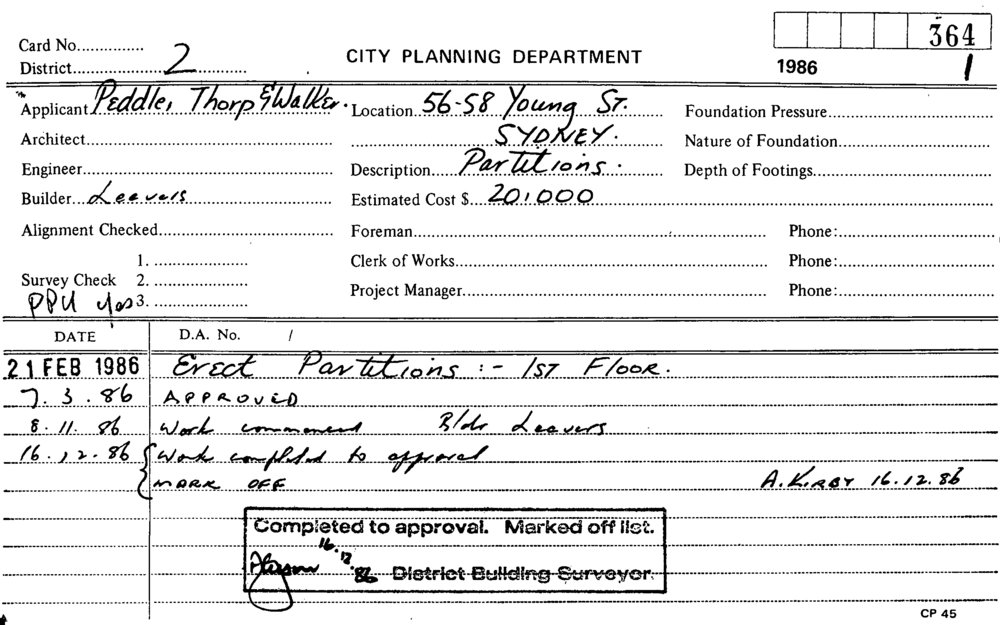 Card No...............
CITY PLANNING DEPARTMENT
364
District.................2...........
1986
1
Applicant Peddle, Thorp & Walker.
Location 56-58 Young St.
Foundation Pressure
Architect
SYDNEY.
Nature of Foundation
Engineer
Description Partitions.
Depth of Footings
Builder Leavers
Estimated Cost $ 20,000
Alignment Checked
Foreman
Phone:
1.
Clerk of Works
Phone:
Survey Check 2.
Project Manager
Phone:
PPU yes 3.
DATE D.A. No. /
21 FEB 1986 Erect Partitions :- 1ST FLOOR.
7. 3. 86 APPROVED
8. 11. 86 Work commenced Bldr Leavers
16. 12. 86 Work completed to approval
MARK OFF A. KIRBY 16.12.86
Completed to approval. Marked off list.
16.12.86 District Building Surveyor.
CP 45